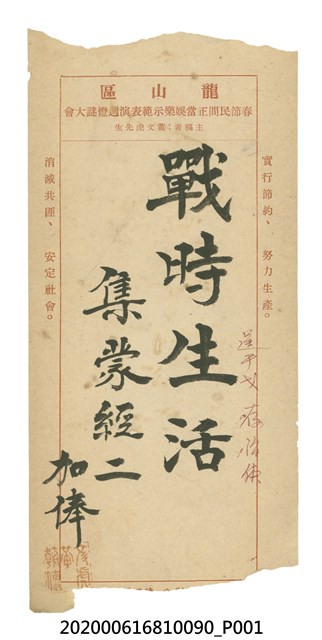 龍山區
春節民間正當娛樂示範表演週燈謎大會
主稿者：黃文虎先生
實行節約、努力生產。
戰時生活
集蒙經二
加俸
消滅共匪、安定社會。
202000616810090_P001